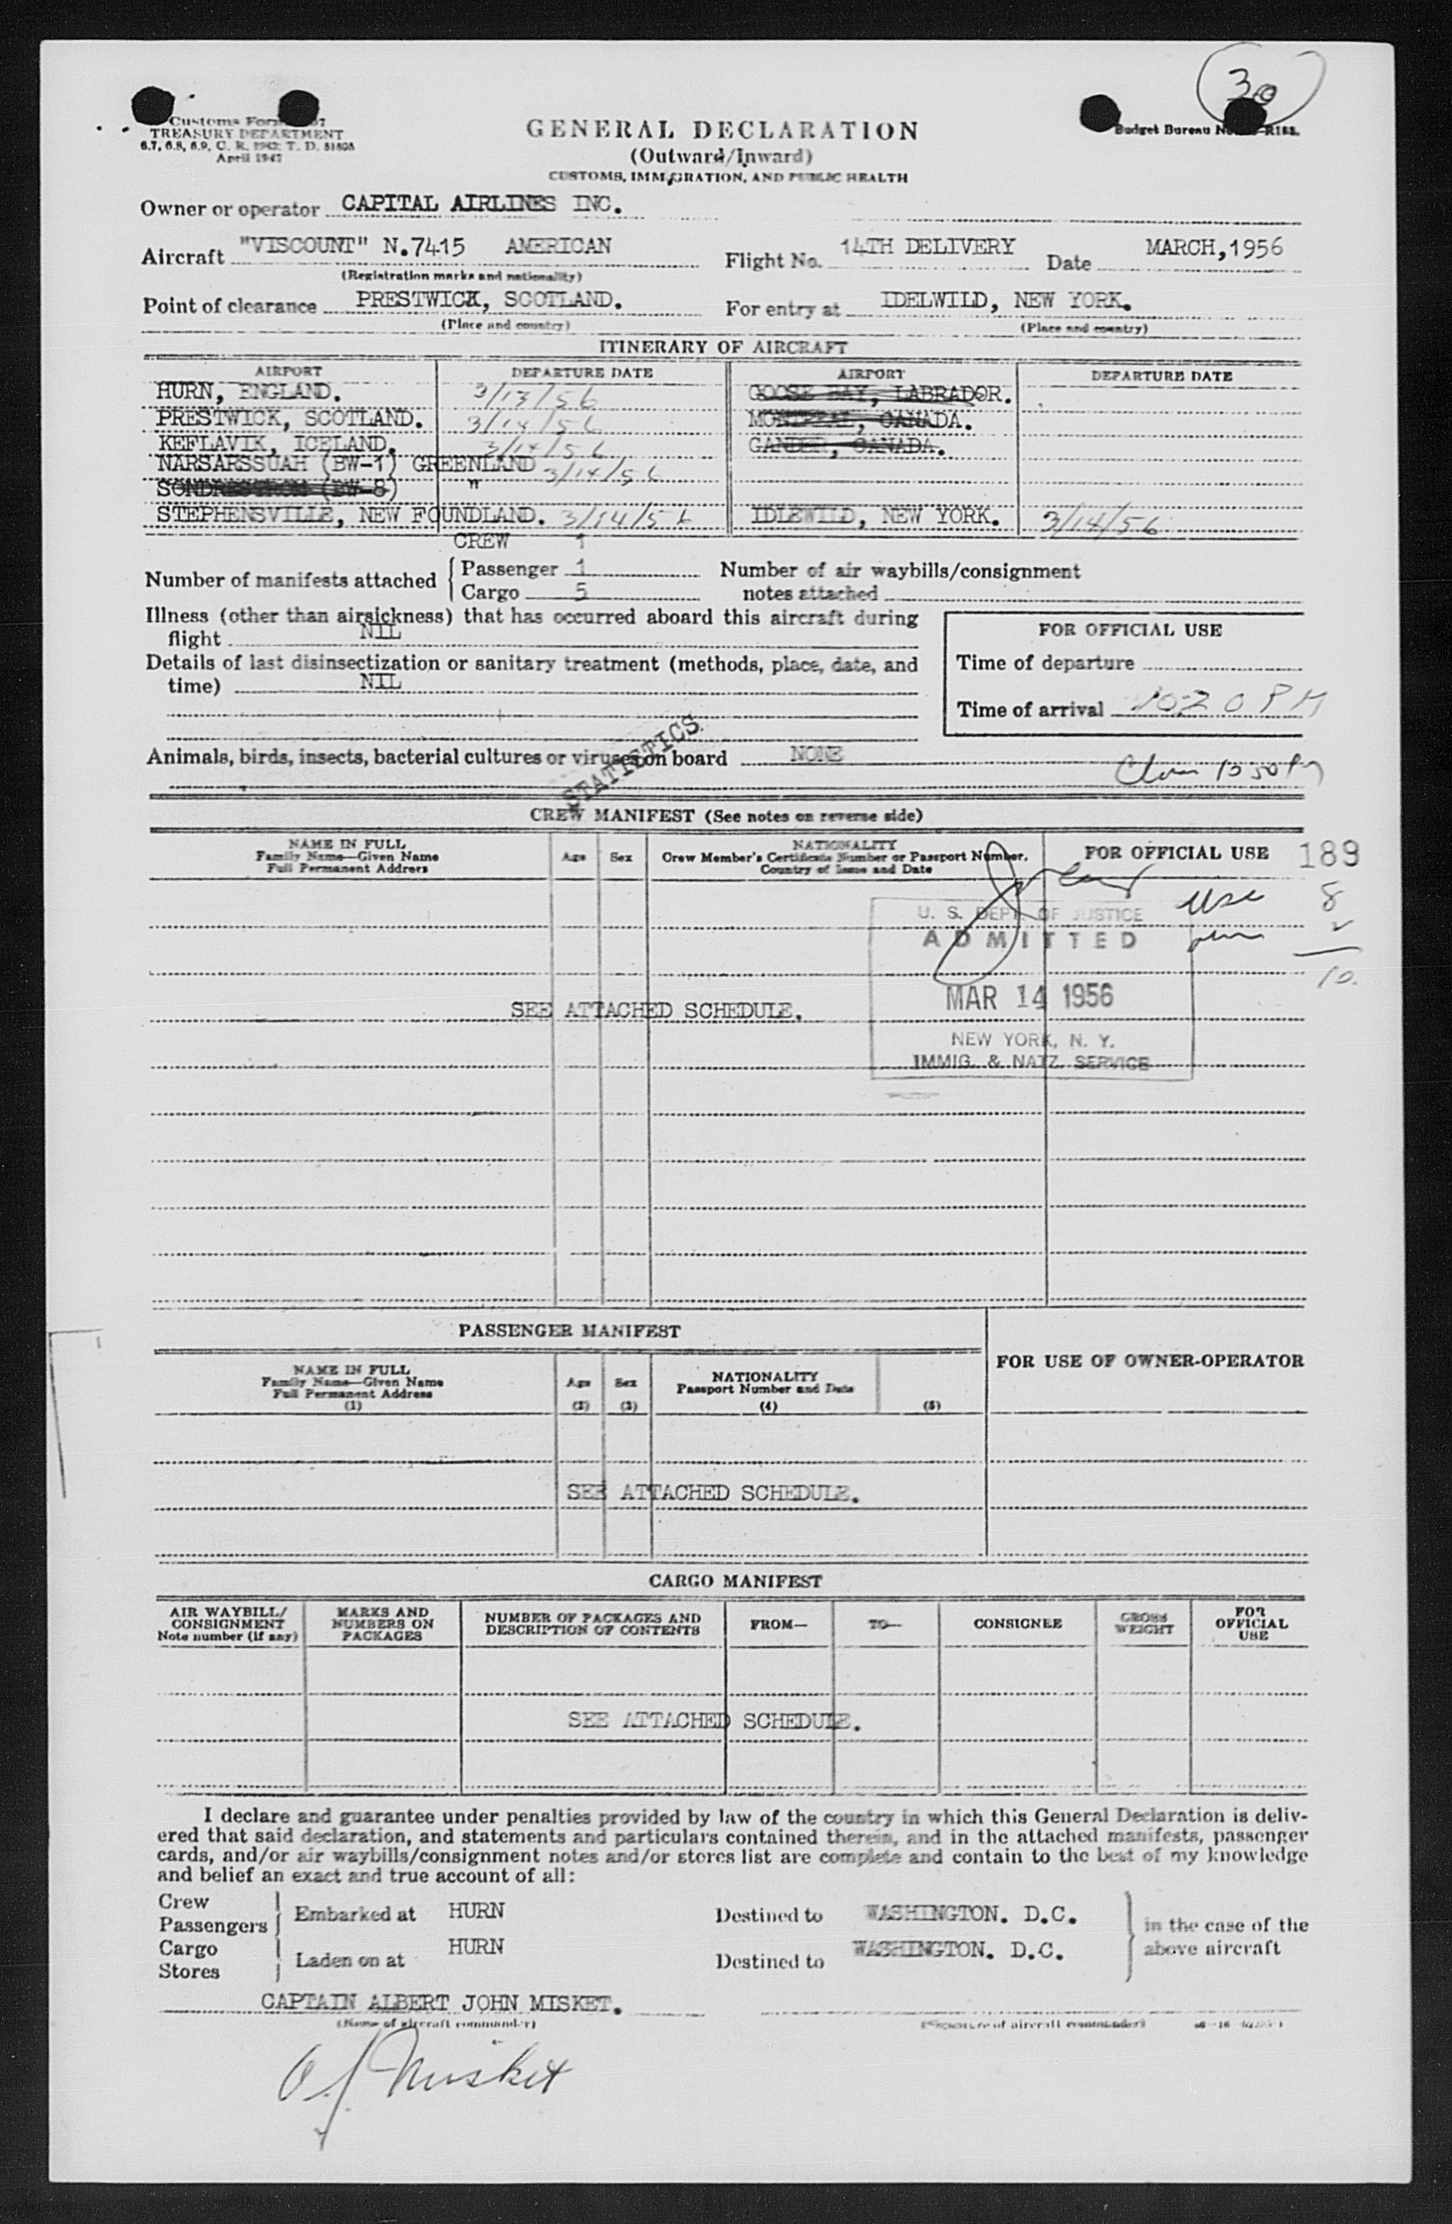 30
Customs Form
TREASURY DEPARTMENT
6.7, 6.8, 6.9, C. R. 1943: T. D. 51808
April 1947
GENERAL DECLARATION
(Outward/Inward)
CUSTOMS, IMMIGRATION, AND PUBLIC HEALTH
Budget Bureau
Owner or operator CAPITAL AIRLINES INC.
Aircraft "VISCOUNT" N.7415 AMERICAN Flight No. 14TH DELIVERY Date MARCH,1956
(Registration marks and nationality)
Point of clearance PRESTWICK, SCOTLAND. For entry at IDELWILD, NEW YORK.
(Place and country) (Place and country)
ITINERARY OF AIRCRAFT
AIRPORT DEPARTURE DATE AIRPORT DEPARTURE DATE
HURN, ENGLAND. 3/13/56 GOOSE BAY, LABRADOR.
PRESTWICK, SCOTLAND. 3/14/56 MONTREAL, CANADA.
KEFLAVIK, ICELAND. 3/14/56 GANDER, CANADA.
NARSARSSUAH (BW-1) GREENLAND 3/14/56
SONDRESTROM (BW-8) "
STEPHENSVILLE, NEW FOUNDLAND. 3/14/56 IDLEWILD, NEW YORK. 3/14/56
CREW 1
Number of manifests attached Passenger 1 Number of air waybills/consignment
Cargo 5 notes attached
Illness (other than airsickness) that has occurred aboard this aircraft during
flight NIL
FOR OFFICIAL USE
Details of last disinsectization or sanitary treatment (methods, place, date, and
time) NIL
Time of departure
Time of arrival 1020 PM
STATISTICS
Animals, birds, insects, bacterial cultures or viruses on board NONE
CREW MANIFEST (See notes on reverse side)
NAME IN FULL
Family Name—Given Name
Full Permanent Address
Age Sex
NATIONALITY
Crew Member's Certificate Number or Passport Number,
Country of Issue and Date
FOR OFFICIAL USE
189
8
2
10
U. S. DEPT. OF JUSTICE
ADMITTED
MAR 14 1956
NEW YORK, N. Y.
IMMIG. & NATZ. SERVICE
SEE ATTACHED SCHEDULE.
PASSENGER MANIFEST
FOR USE OF OWNER-OPERATOR
NAME IN FULL
Family Name—Given Name
Full Permanent Address
(1)
Age
(2)
Sex
(3)
NATIONALITY
Passport Number and Date
(4) (5)
SEE ATTACHED SCHEDULE.
CARGO MANIFEST
AIR WAYBILL/
CONSIGNMENT
Note number (if any)
MARKS AND
NUMBERS ON
PACKAGES
NUMBER OF PACKAGES AND
DESCRIPTION OF CONTENTS
FROM— TO— CONSIGNEE
GROSS
WEIGHT
FOR
OFFICIAL
USE
SEE ATTACHED SCHEDULE.
I declare and guarantee under penalties provided by law of the country in which this General Declaration is deliv-
ered that said declaration, and statements and particulars contained therein, and in the attached manifests, passenger
cards, and/or air waybills/consignment notes and/or stores list are complete and contain to the best of my knowledge
and belief an exact and true account of all:
Crew
Passengers Embarked at HURN Destined to WASHINGTON. D.C. in the case of the
Cargo
Stores Laden on at HURN Destined to WASHINGTON. D.C. above aircraft
CAPTAIN ALBERT JOHN MISKET.
(Name of aircraft commander) (Signature of aircraft commander)
A J Misket